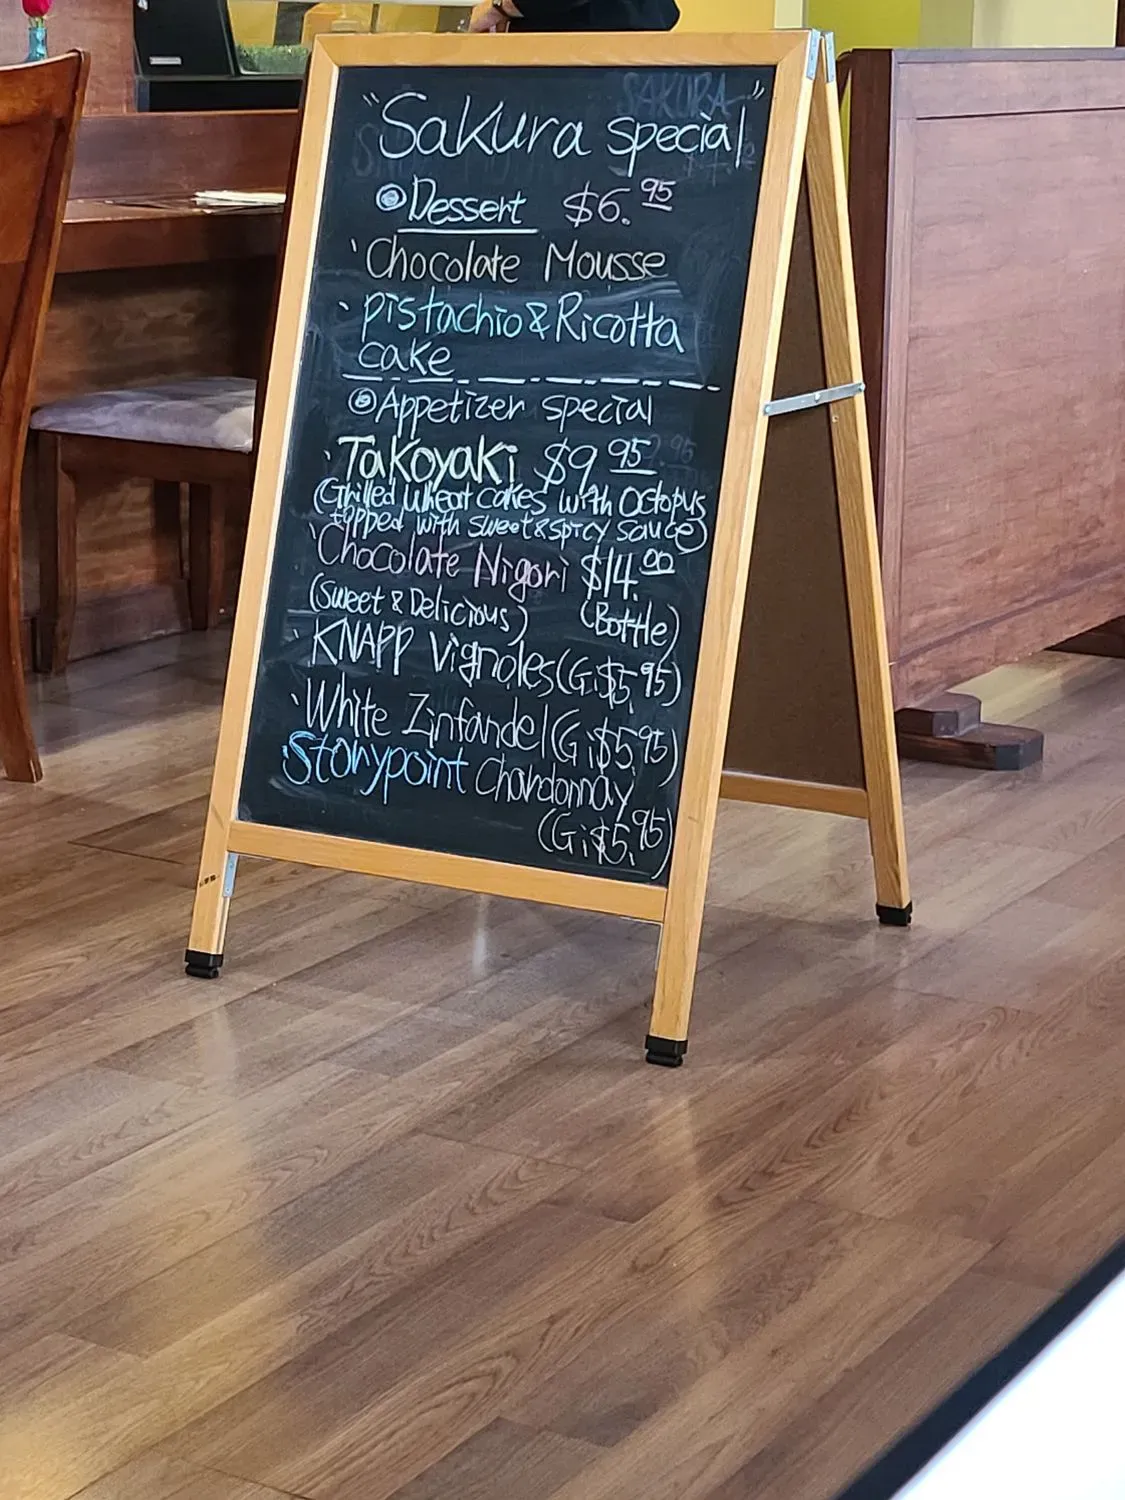 "Sakura special"
◎Dessert $6.95
·Chocolate Mousse
·pistachio & Ricotta
cake
◎Appetizer special
·Takoyaki $9.95
(Grilled wheat cakes with Octopus
topped with sweet & spicy sauce)
·Chocolate Nigori $14.00
(Sweet & Delicious) (Bottle)
·KNAPP Vignoles (G:$5.95)
·White Zinfandel (G:$5.95)
·Stonypoint Chardonnay
(G:$5.95)